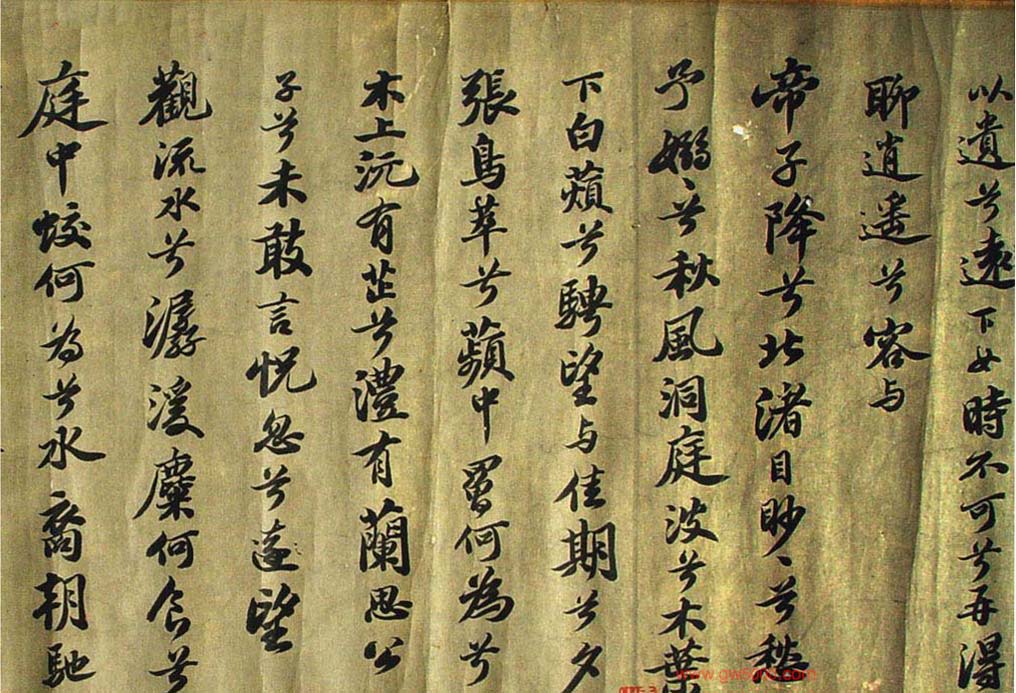 以遺兮遠下女時不可兮再得
聊逍遥兮容与
帝子降兮北渚目眇〻兮愁
予嫋〻兮秋風洞庭波兮木葉
下白薠兮騁望与佳期兮夕
張鳥萃兮蘋中罾何為兮
木上沅有芷兮澧有蘭思公
子兮未敢言怳忽兮遠望
觀流水兮潺湲麋何食兮
庭中蛟何為兮水裔朝馳